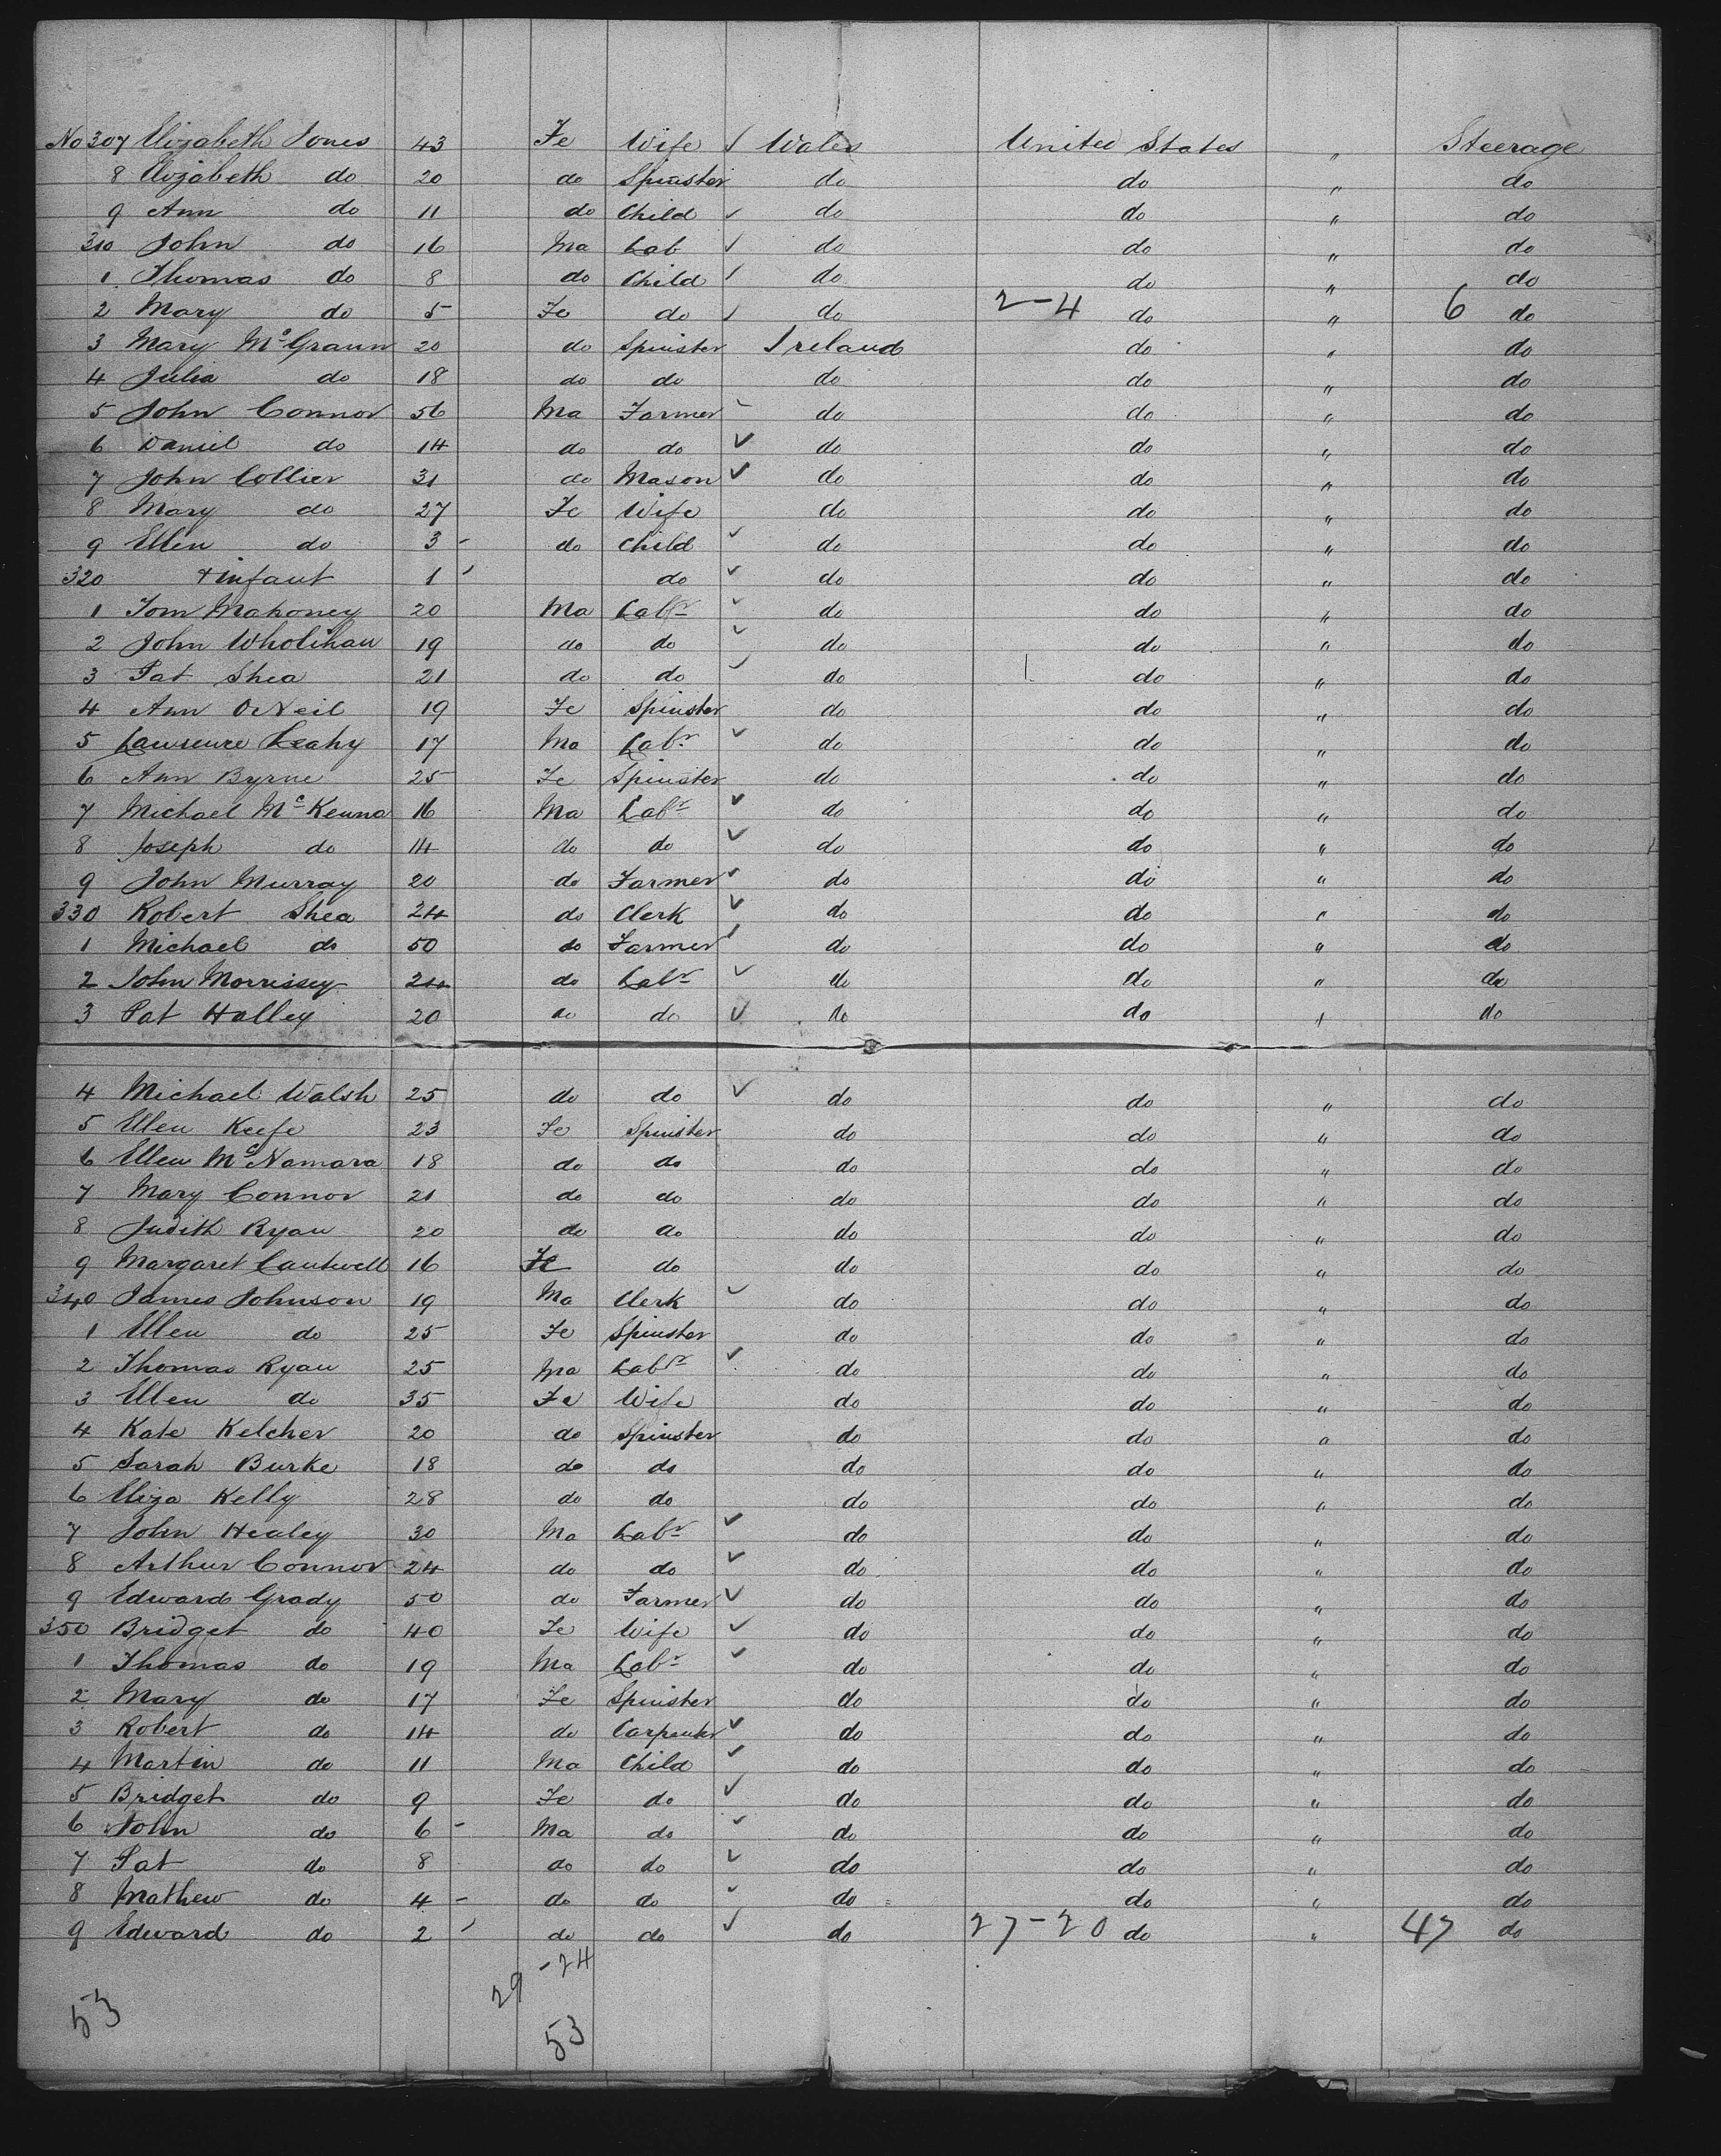 No 307 Elizabeth Jones 43 Fe Wife ✓ Wales United States " Steerage
8 Elizabeth do 20 do Spinster do do " do
9 Ann do 11 do Child ✓ do do " do
310 John do 16 Ma Lab ✓ do do " do
1 Thomas do 8 do Child ✓ do do " do
2 Mary do 5 Fe do ✓ do 2-4 do " 6 do
3 Mary McGrann 20 do Spinster Ireland do " do
4 Julia do 18 do do do do " do
5 John Connor 56 Ma Farmer - do do " do
6 Daniel do 14 do do ✓ do do " do
7 John Collier 31 do Mason ✓ do do " do
8 Mary do 27 Fe Wife do do " do
9 Ellen do 3 - do Child ✓ do do " do
320 + infant 1 ' do ✓ do do " do
1 Tom Mahoney 20 Ma Labr ✓ do do " do
2 John Wholihan 19 do do ✓ do do " do
3 Pat Shea 21 do do ✓ do do " do
4 Ann O'Neil 19 Fe Spinster do do " do
5 Lawrence Leahy 17 Ma Labr ✓ do do " do
6 Ann Byrne 25 Fe Spinster do do " do
7 Michael McKenna 16 Ma Labr ✓ do do " do
8 Joseph do 14 do do ✓ do do " do
9 John Murray 20 do Farmer ✓ do do " do
330 Robert Shea 24 do Clerk ✓ do do " do
1 Michael do 50 do Farmer ✓ do do " do
2 John Morrissey 24 do Labr ✓ do do " do
3 Pat Halley 20 do do ✓ do do " do
4 Michael Walsh 25 do do ✓ do do " do
5 Ellen Keefe 23 Fe Spinster do do " do
6 Ellen McNamara 18 do do do do " do
7 Mary Connor 21 do do do do " do
8 Judith Ryan 20 do do do do " do
9 Margaret Cantwell 16 Fe do do do " do
340 James Johnson 19 Ma Clerk ✓ do do " do
1 Ellen do 25 Fe Spinster do do " do
2 Thomas Ryan 25 Ma Labr ✓ do do " do
3 Ellen do 35 Fe Wife do do " do
4 Kate Kelcher 20 do Spinster do do " do
5 Sarah Burke 18 do do do do " do
6 Eliza Kelly 28 do do do do " do
7 John Healey 30 Ma Labr ✓ do do " do
8 Arthur Connor 24 do do ✓ do do " do
9 Edward Grady 50 do Farmer ✓ do do " do
350 Bridget do 40 Fe Wife ✓ do do " do
1 Thomas do 19 Ma Labr ✓ do do " do
2 Mary do 17 Fe Spinster do do " do
3 Robert do 14 do Carpenter ✓ do do " do
4 Martin do 11 Ma Child ✓ do do " do
5 Bridget do 9 Fe do ✓ do do " do
6 John do 6 - Ma do ✓ do do " do
7 Pat do 8 do do ✓ do do " do
8 Mathew do 4 - do do ✓ do do " do
9 Edward do 2 ' do do ✓ do 27-20 do " 47 do
29 -24
53 53